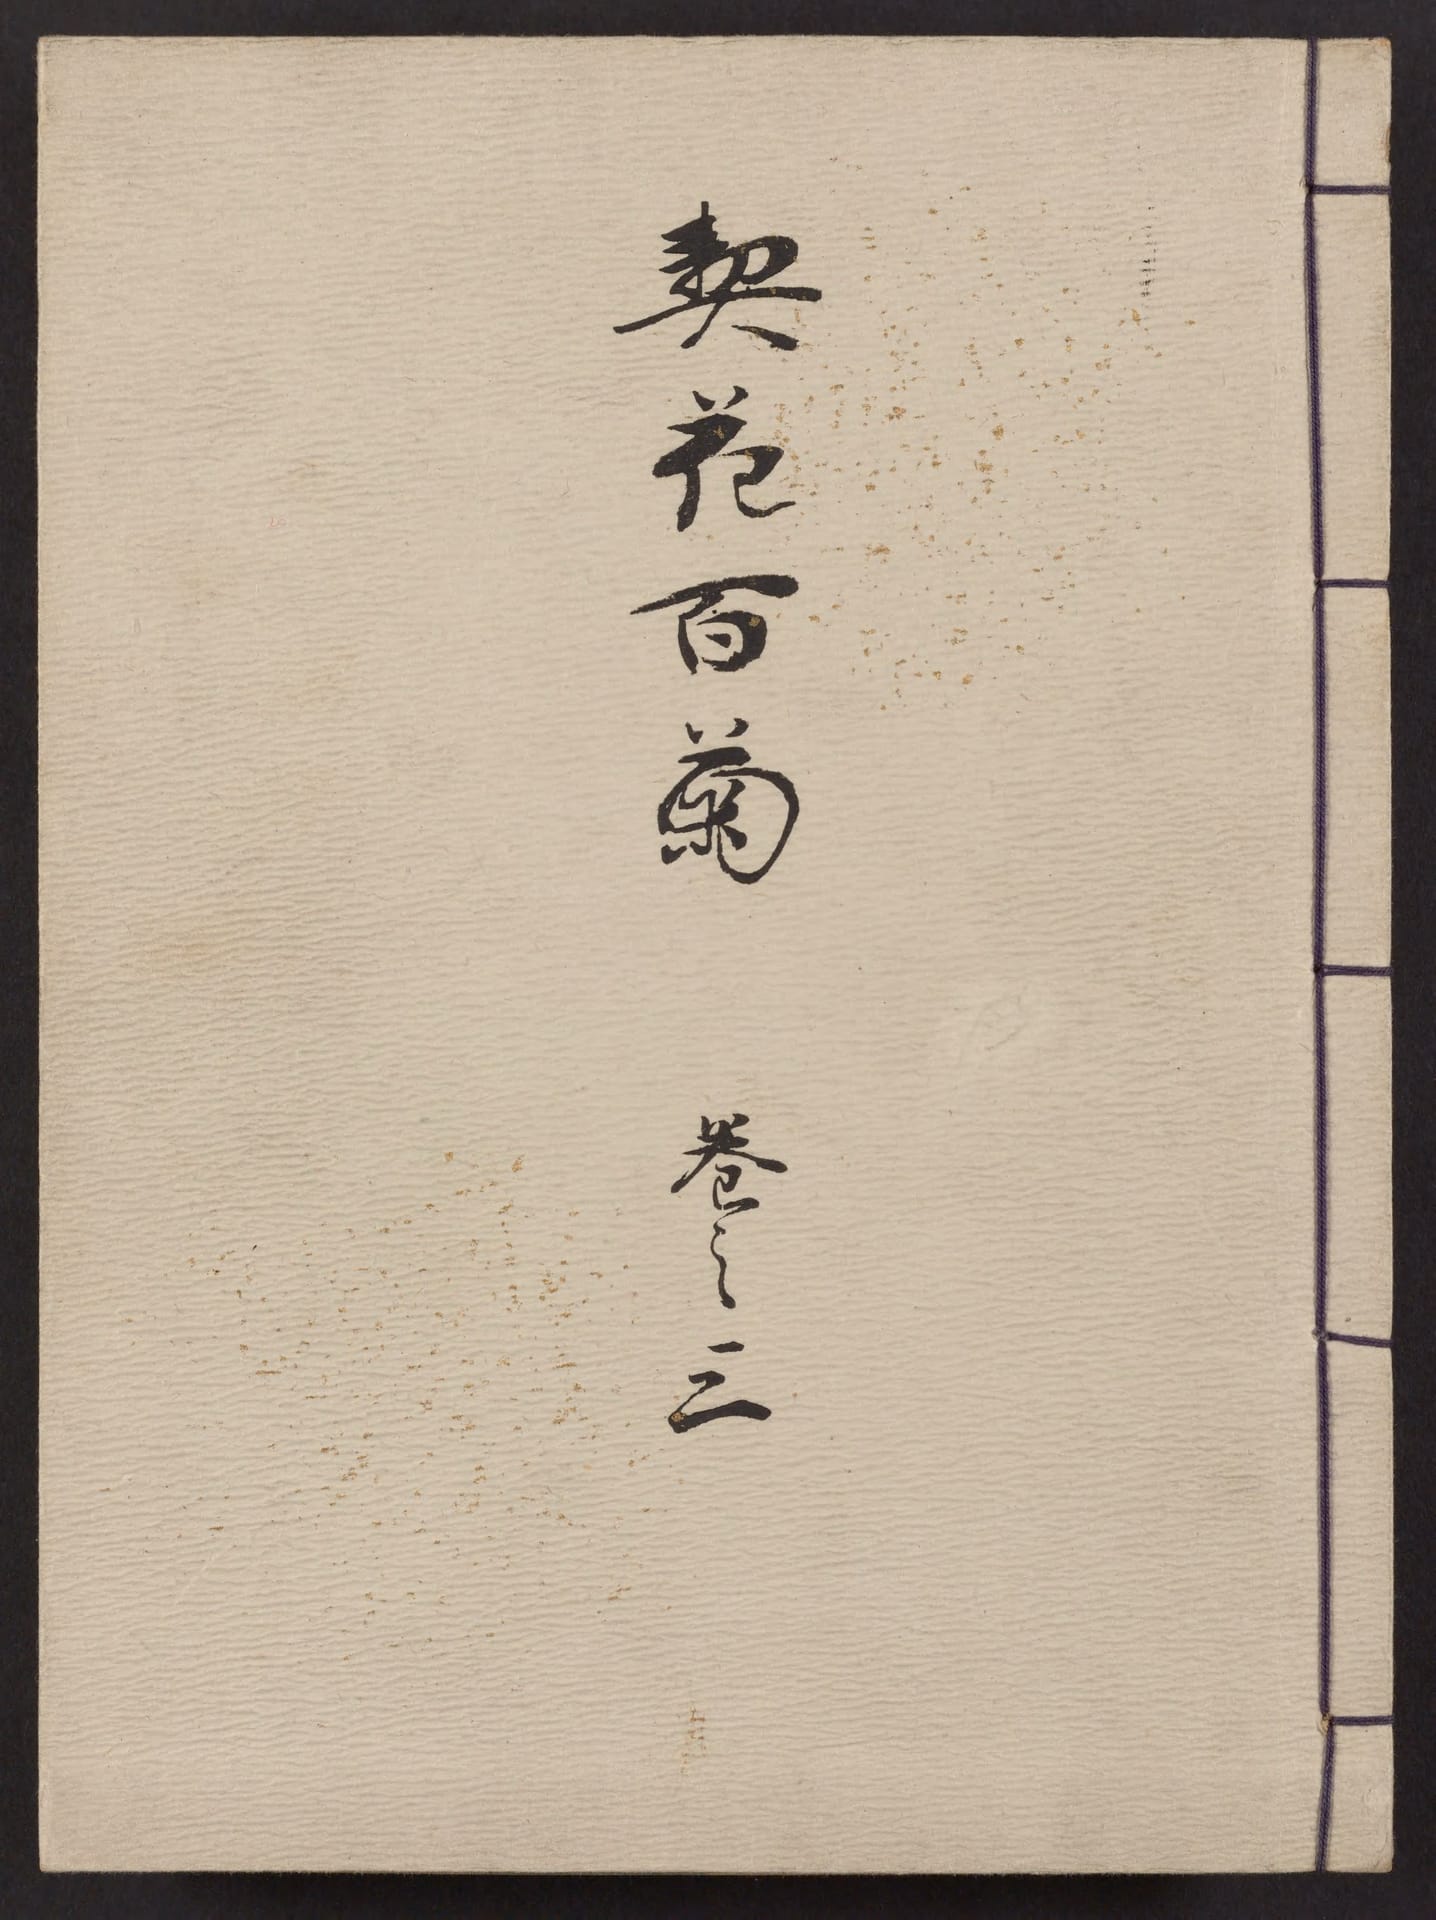 契花百菊
巻之三